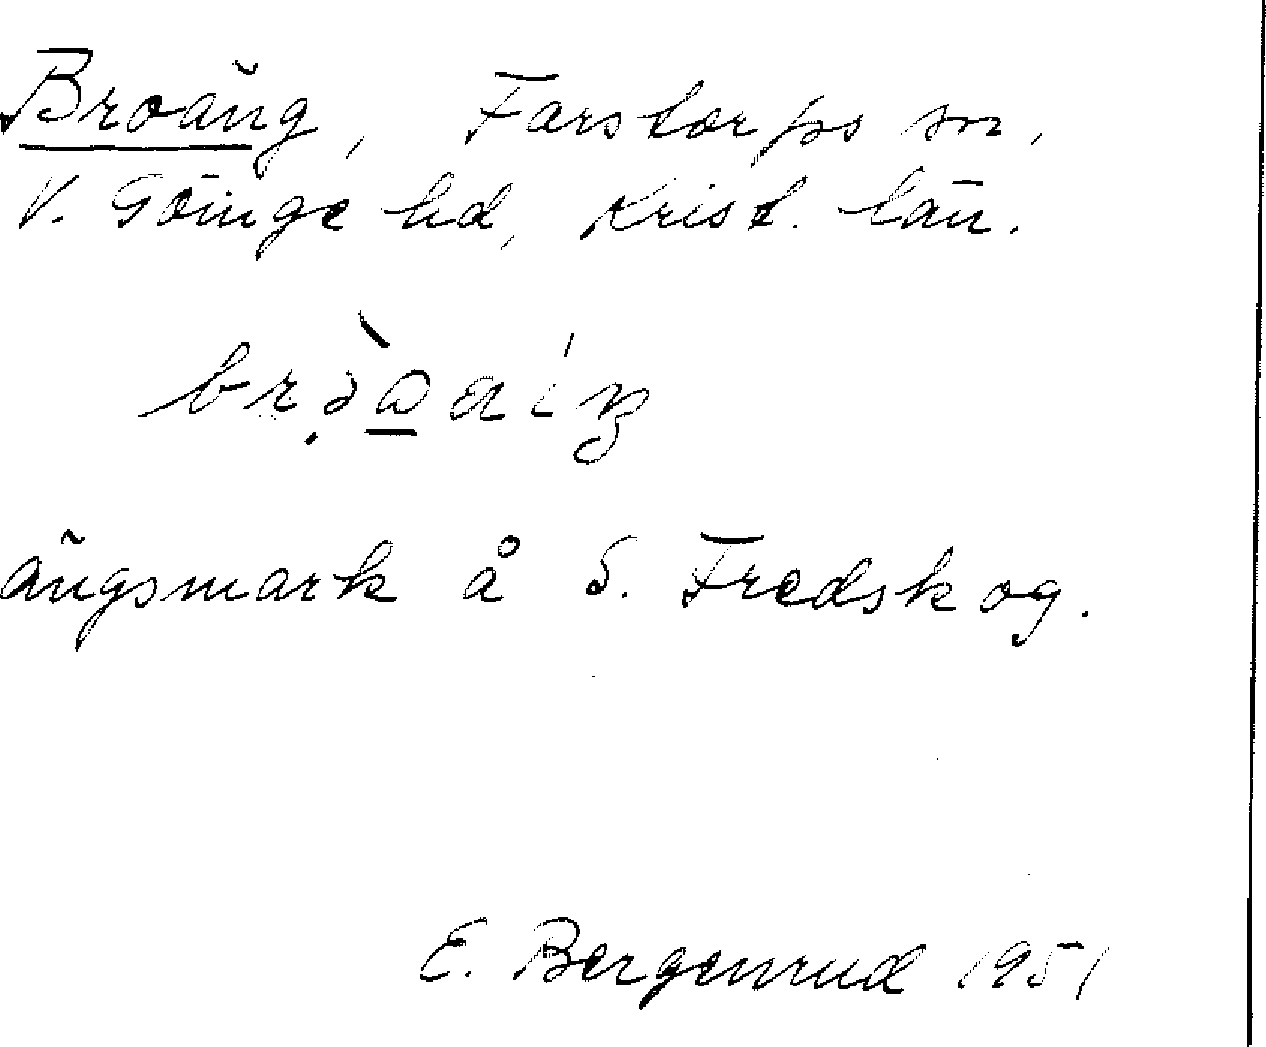 Broäng, Farstorps sn,
V. Göinge hd, Krist. län.
ängsmark å S. Fredskog.
E. Bergenrud 1951